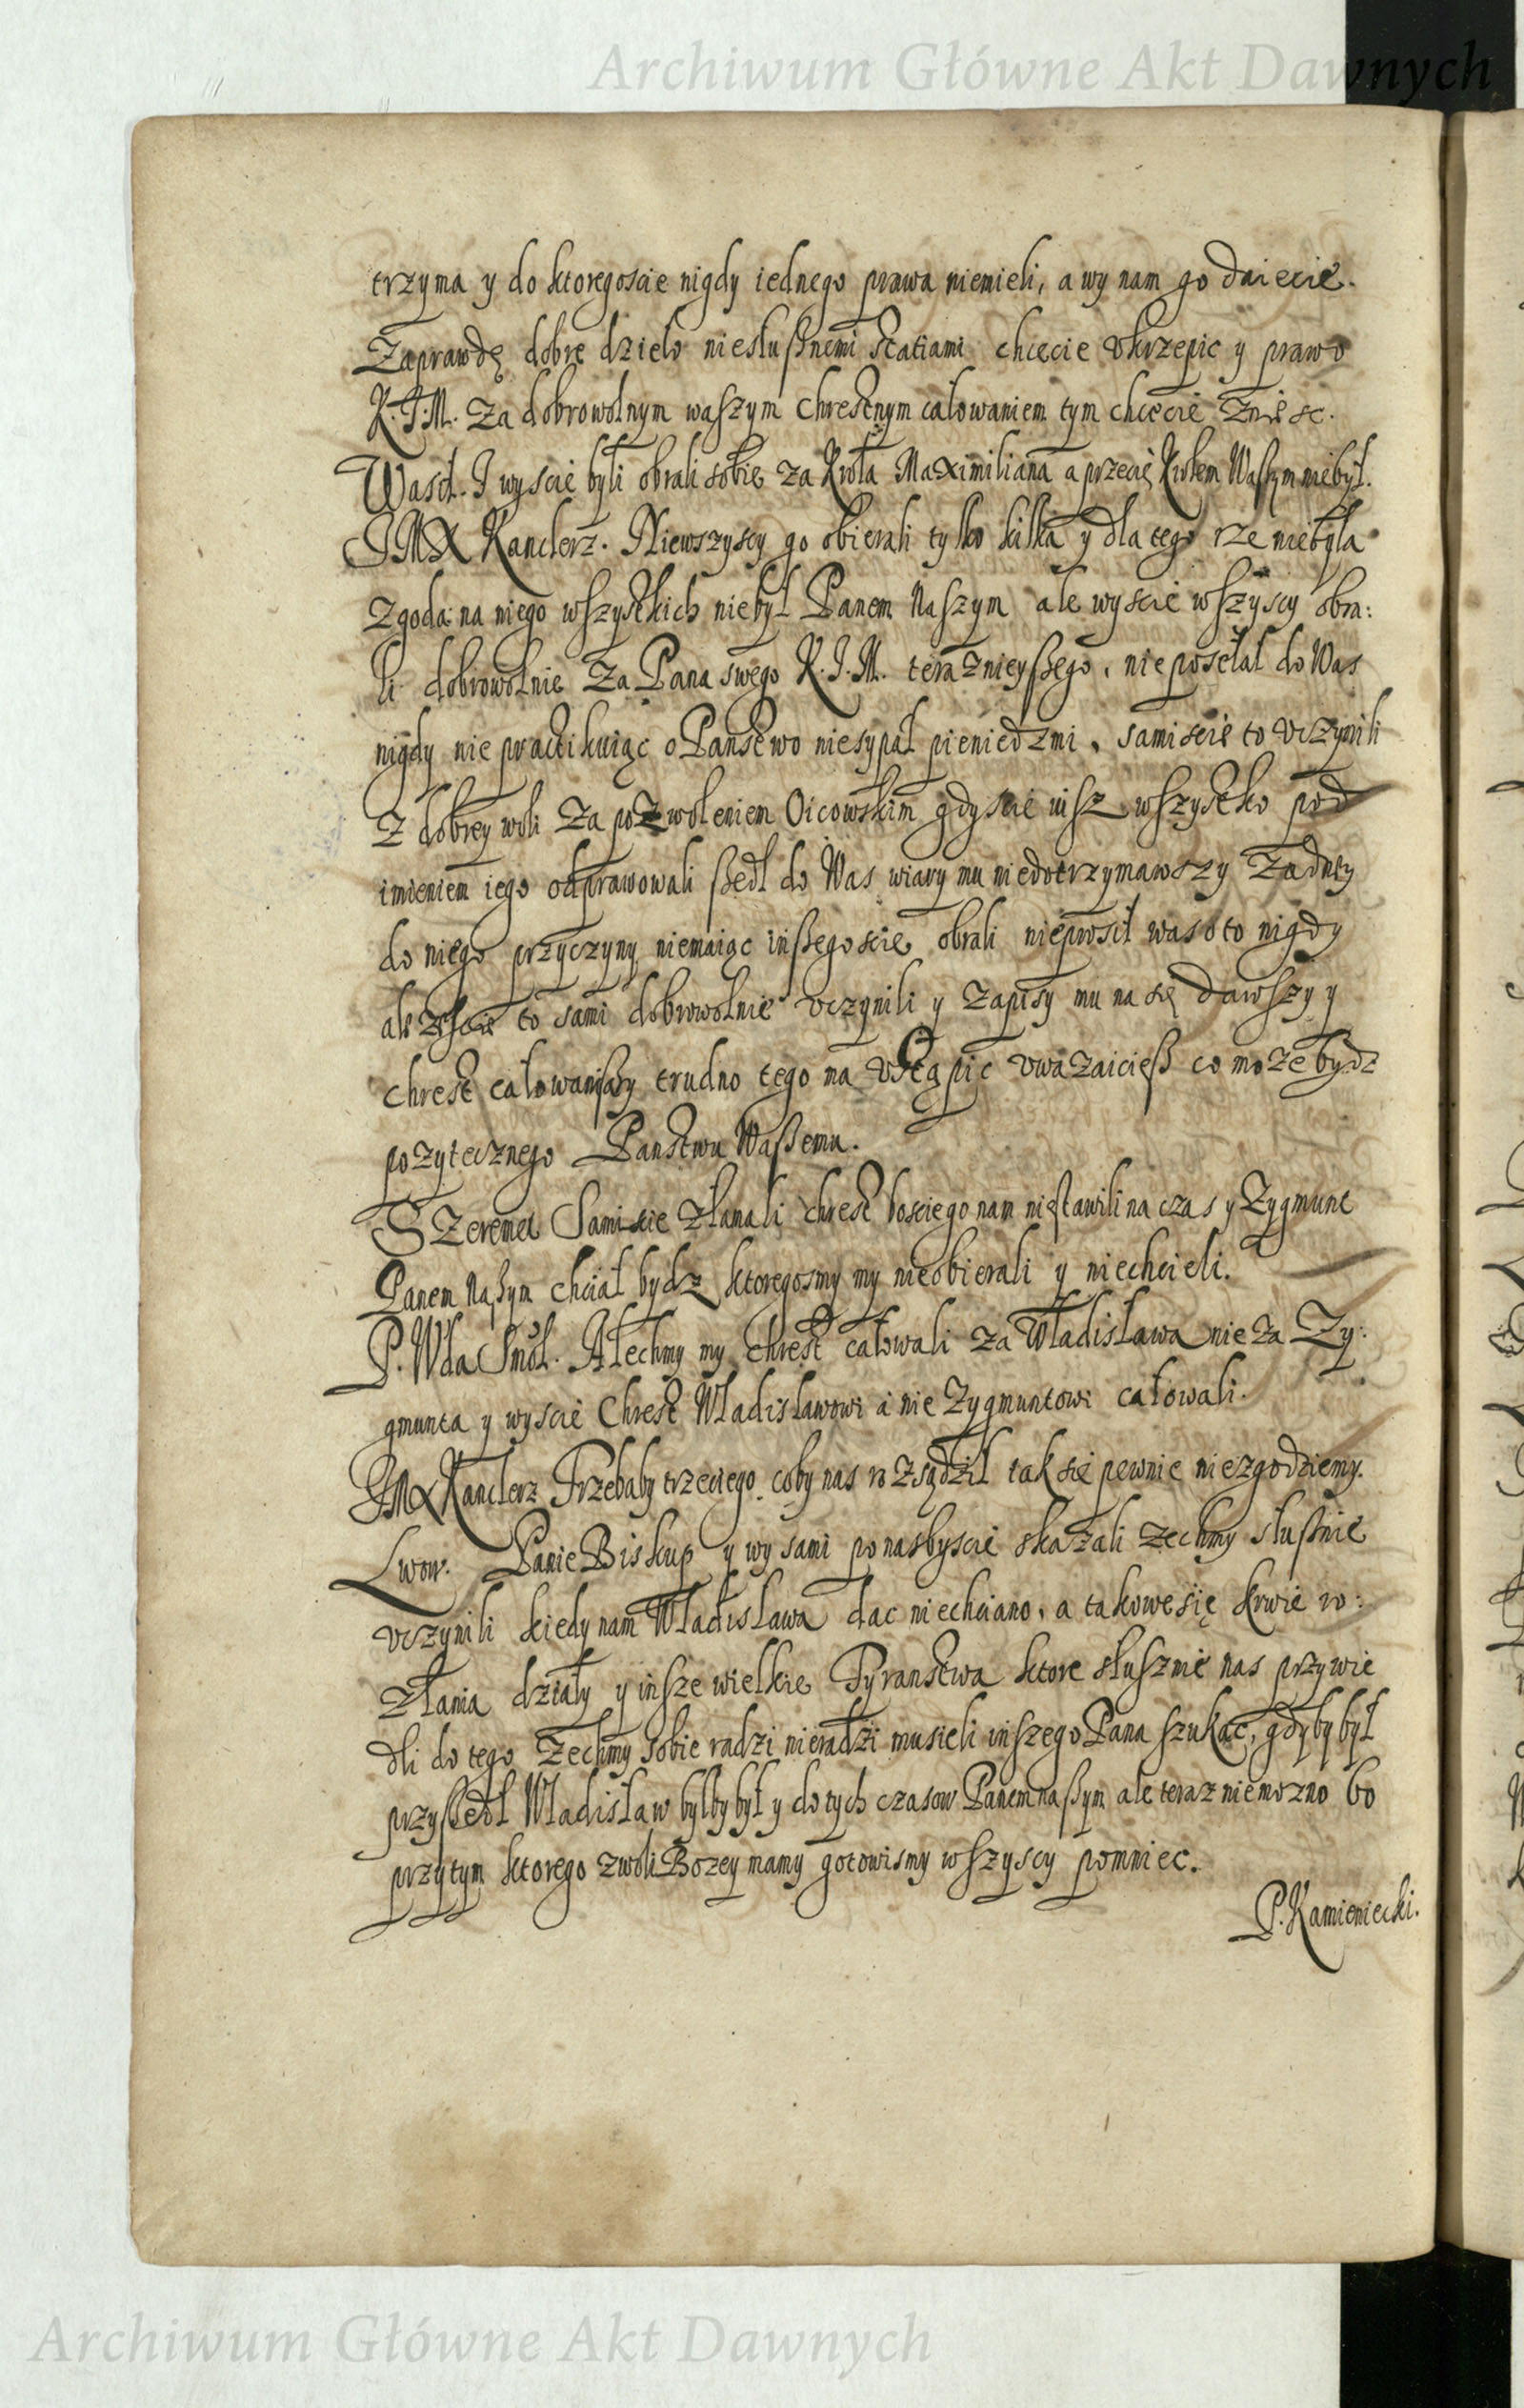 Archiwum Główne Akt Dawnych
trzyma y do ktoregoscie nigdy iednego prawa niemieli, a wy nam go daiecie.
Zaprawdę dobre dzielo niesłußnemi statiami chcecie vkrzepic y prawo
K. J. M. za dobrowolnym waszym chrestnym całowaniem tym chcecie zniesc.
Wasil. I wyscie byli obrali sobie za Krola Maximiliana a przecię Krolem Waszym niebył.
JMX Kanclerz. Niewszyscy go obierali tylko kilka y dla tego rze niebyla
zgoda na niego wszystkich niebył Panem Naszym ale wyscie wszyscy obra:
li dobrowolnie za Pana swego K. J. M. teraznieyßego, nie posełał do Was
nigdy nie practikuiąc o Panstwo niesypał pieniedzmi, sami scie to vczynili
z dobrey woli za pozwoleniem Oicowskim gdyscie iusz wszystko pod
imieniem iego odprawowali ßedl do Was wiary mu niedotrzymawszy żadney
do niego przyczyny niemaiąc inßegoscie obrali nieprosił was o to nigdy
ale zescie to sami dobrowolnie vczynili y zapisy mu na się dawszy y
chrest całowawszy trudno tego ma vstąpic vwazaicieß co może bydz
pozytecznego Panstwu Waßemu.
Szeremet Samiscie złamali chrest bosciego nam niestawili na czas y Zygmunt
Panem Naßym chciał bydz ktoregosmy my nieobierali y niechcieli.
P. Wda Smol. Alechmy my chrest całowali za Władisława nie za Zy:
gmunta y wyscie Chrest Wladisławowi a nie Zygmuntowi całowali.
JMX Kanclerz Trzebaby trzeciego coby nas rozsądził tak się pewnie niezgodziemy.
Lwow. Panie Biskup y wy sami po nasbyscie skazali zechmy słußnie
vczynili kiedy nam Władisława dac niechciano, a takowe się krwie ro:
złania działy y insze wielkie Tyranstwa ktore słusznie nas przywie
dli do tego zechmy sobie radzi nieradzi musieli inszego Pana szukac, gdyby był
przyßedł Wladisław bylby był y do tych czasow Panem naßym ale teraz niemozno bo
przy tym ktorego z woli Bozey mamy gotowismy wszyscy pomniec.
P. Kamieniecki.
Archiwum Główne Akt Dawnych